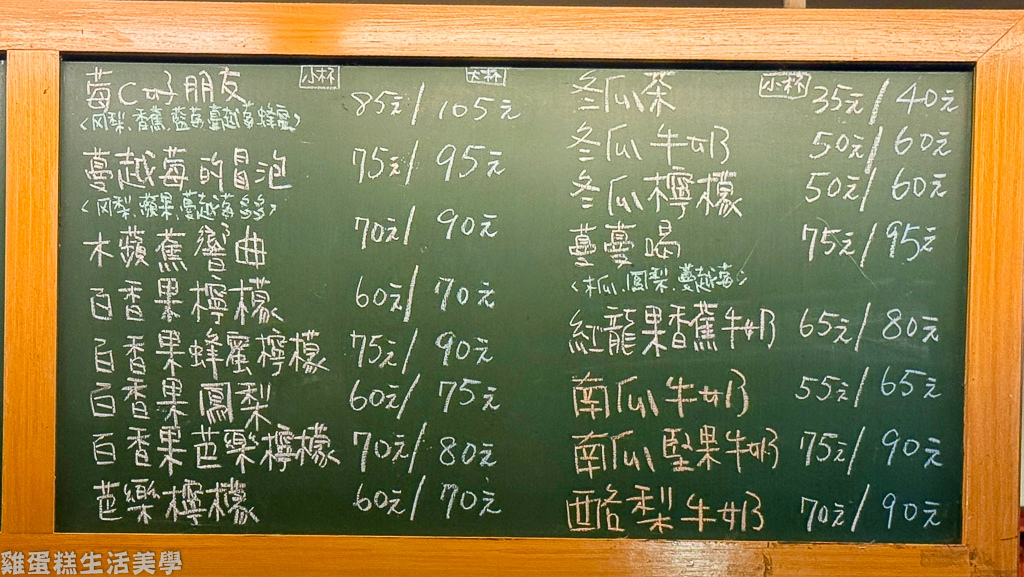 莓C好朋友 小杯 大杯 85元/105元
<凤梨、香蕉、藍莓、蔓越莓、蜂蜜>
蔓越莓的冒泡 75元/95元
<凤梨、蘋果、蔓越莓、多多>
木蘋蕉響曲 70元/90元
百香果檸檬 60元/70元
百香果蜂蜜檸檬 75元/90元
百香果鳳梨 60元/75元
百香果芭樂檸檬 70元/80元
芭樂檸檬 60元/70元
冬瓜茶 小杯 35元/40元
冬瓜牛奶 50元/60元
冬瓜檸檬 50元/60元
蔓蔓喝 75元/95元
<木瓜、鳳梨、蔓越莓>
紅龍果香蕉牛奶 65元/80元
南瓜牛奶 55元/65元
南瓜堅果牛奶 75元/90元
酪梨牛奶 70元/90元
雞蛋糕生活美學